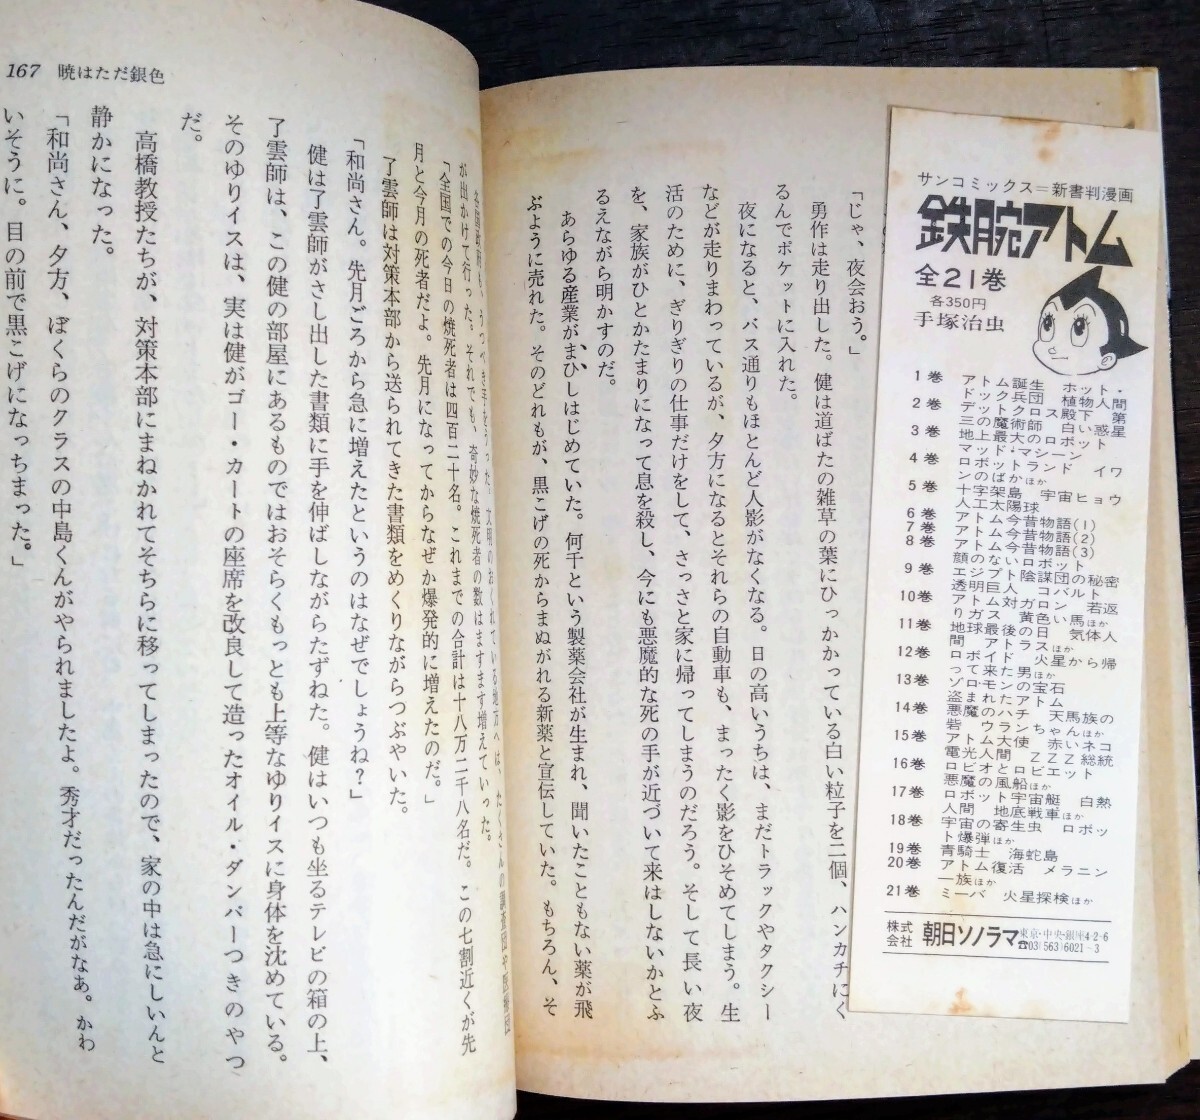 「じゃ、夜会おう。」
勇作は走り出した。健は道ばたの雑草の葉にひっかかっている白い粒子を二個、ハンカチにく
るんでポケットに入れた。
夜になると、バス通りもほとんど人影がなくなる。日の高いうちは、まだトラックやタクシー
などが走りまわっているが、夕方になるとそれらの自動車も、まったく影をひそめてしまう。生
活のために、ぎりぎりの仕事だけをして、さっさと家に帰ってしまうのだろう。そして長い夜
を、家族がひとかたまりになって息を殺し、今にも悪魔的な死の手が近づいて来はしないかとふ
るえながら明かすのだ。
あらゆる産業が、まひしはじめていた。何千という製薬会社が生まれ、聞いたこともない薬が飛
ぶように売れた。そのどれもが、黒こげの死からまぬがれる新薬と宣伝していた。もちろん、そ
167 暁はただ銀色
各国政府も、うつべき手をうった。文明のおくれている地方へは、たくさんの調査団や医療団
が出かけて行った。それでも、奇妙な焼死者の数はますます増えていった。
「全国での今日の焼死者は四百二十名。これまでの合計は十八万二千八名だ。この七割近くが先
月と今月の死者だよ。先月になってからなぜか爆発的に増えたのだ。」
了雲師は対策本部から送られてきた書類をめくりながらつぶやいた。
「和尚さん。先月ごろから急に増えたというのはなぜでしょうね？」
健は了雲師がさし出した書類に手を伸ばしながらたずねた。健はいつも坐るテレビの箱の上、
了雲師は、この健の部屋にあるものではおそらくもっとも上等なゆりイスに身体を沈めている。
そのゆりイスは、実は健がゴー・カートの座席を改良して造ったオイル・ダンパーつきのやつ
だ。
高橋教授たちが、対策本部にまねかれてそちらに移ってしまったので、家の中は急にしいんと
静かになった。
「和尚さん、夕方、ぼくらのクラスの中島くんがやられましたよ。秀才だったんだがなあ。かわ
いそうに。目の前で黒こげになっちまった。」
サンコミックス＝新書判漫画
鉄腕アトム
全21巻
各350円
手塚治虫
1巻 アトム誕生 ホット・
ドック兵団 植物人間
2巻 デットクロス殿下 第
三の魔術師 白い惑星
3巻 地上最大のロボット
マッド・マシーン
4巻 ロボットランド イワ
ンのばかほか
5巻 十字架島 宇宙ヒョウ
人工太陽球
6巻 アトム今昔物語(1)
7巻 アトム今昔物語(2)
8巻 アトム今昔物語(3)
顔のないロボット
9巻 エジプト陰謀団の秘密
透明巨人 コバルト
10巻 アトム対ガロン 若返
りガス 黄色い馬ほか
11巻 地球最後の日 気体人
間 アトラスほか
12巻 ロボイド 火星から帰
って来た男ほか
13巻 ゾロモンの宝石
盗まれたアトム
14巻 悪魔のハチ 天馬族の
砦 ウランちゃんほか
15巻 アトム大使 赤いネコ
電光人間 ZZZ総統
16巻 ロビオとロビエット
悪魔の風船ほか
17巻 ロボット宇宙艇 白熱
人間 地底戦車ほか
18巻 宇宙の寄生虫 ロボッ
ト爆弾ほか
19巻 青騎士 海蛇島
20巻 アトム復活 メラニン
一族ほか
21巻 ミーバ 火星探検ほか
株式会社 朝日ソノラマ
東京・中央・銀座4-2-6
☎03(563)6021-3